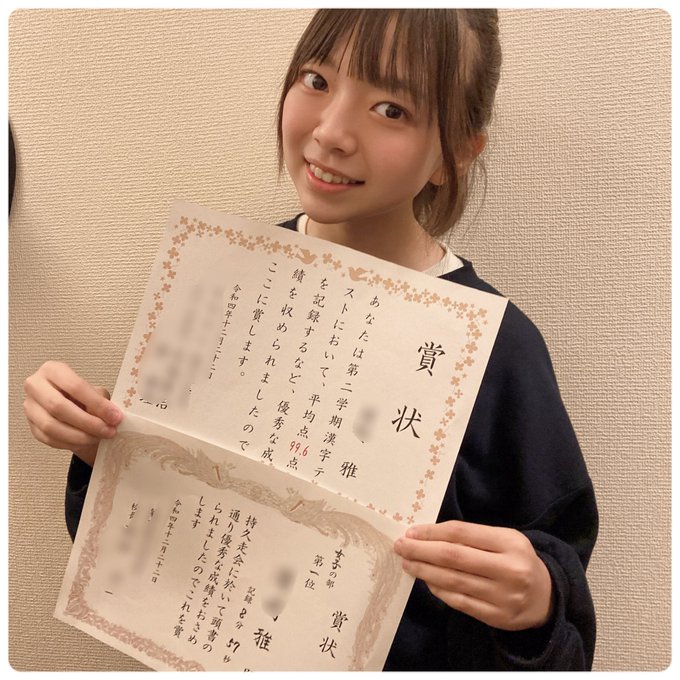 賞状
雅
あなたは第二学期漢字テ
ストにおいて、平均点99.6点
を記録するなど、優秀な成
績を収められましたので
ここに賞します。
令和四年十二月二十二日
治
賞状
女子の部
第一位
雅
記録 8分57秒
持久走会に於いて頭書の
通り優秀な成績をおさめ
られましたのでこれを賞
します
令和四年十二月二十二日